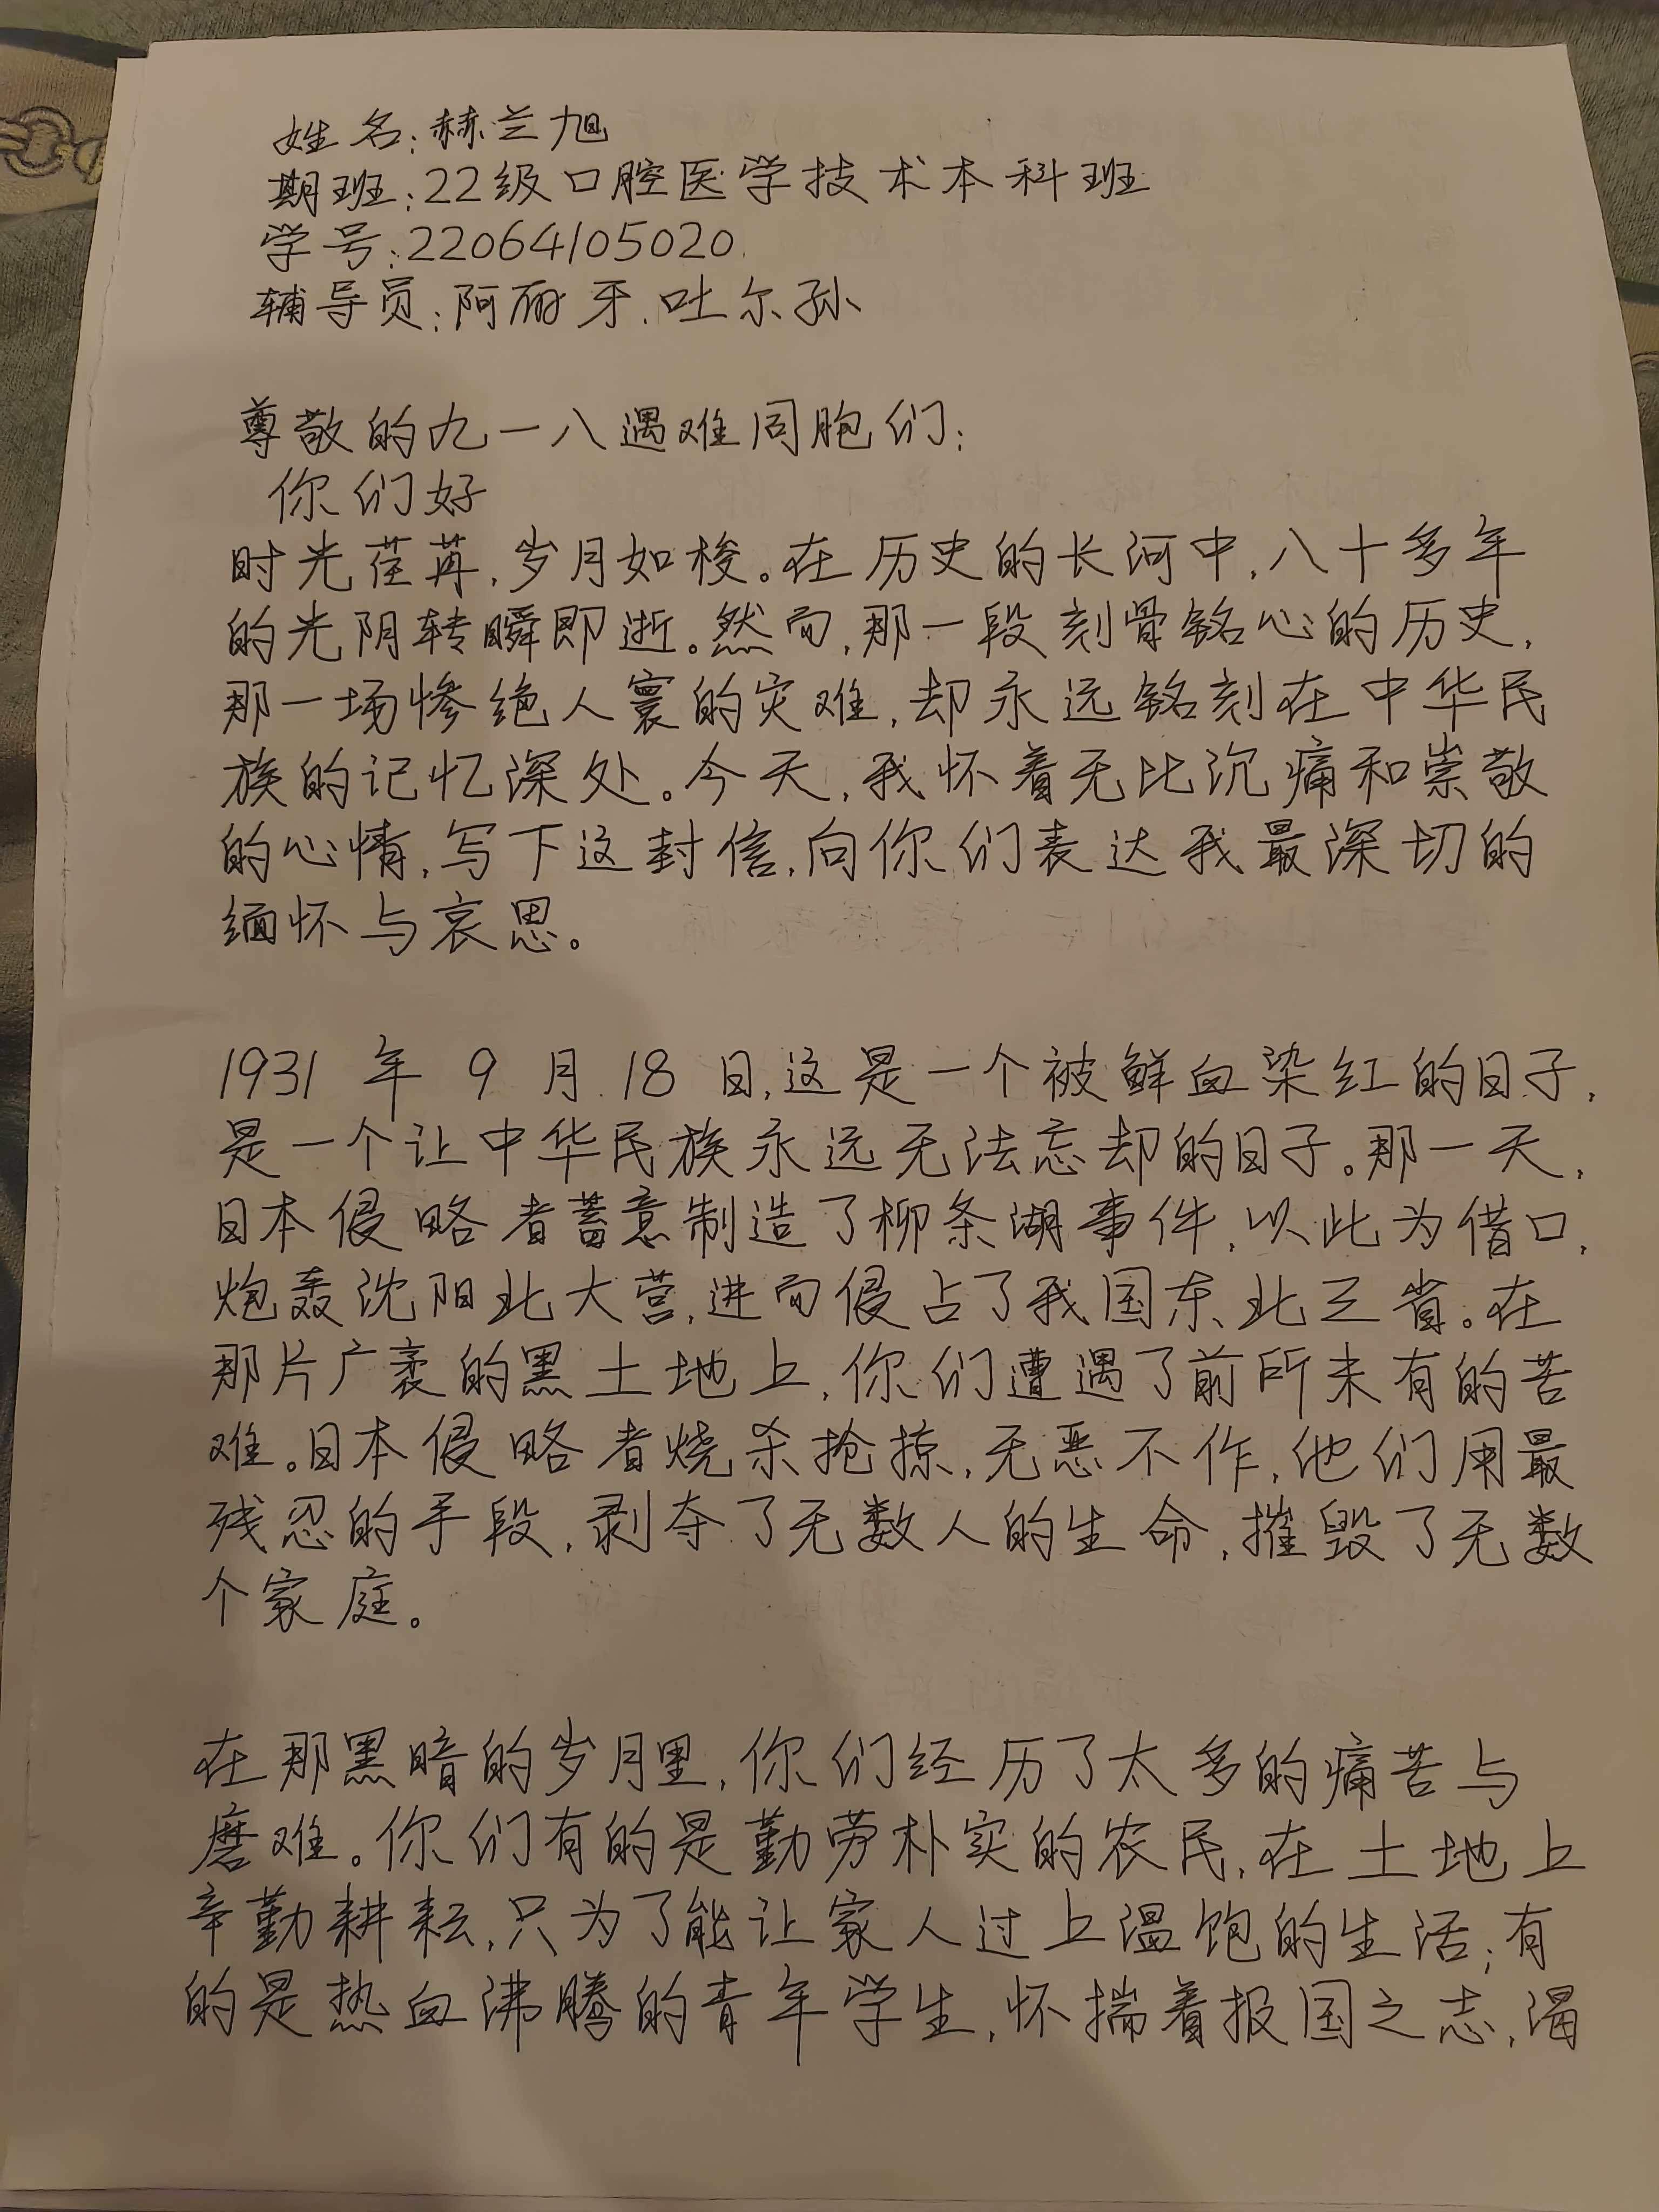 姓名:赫兰旭
期班:22级口腔医学技术本科班
学号:22064105020.
辅导员:阿丽牙.吐尔孙
尊敬的九一八遇难同胞们:
你们好
时光荏苒,岁月如梭。在历史的长河中,八十多年
的光阴转瞬即逝。然而,那一段刻骨铭心的历史,
那一场惨绝人寰的灾难,却永远铭刻在中华民
族的记忆深处。今天,我怀着无比沉痛和崇敬
的心情,写下这封信,向你们表达我最深切的
缅怀与哀思。
1931 年 9 月 18 日,这是一个被鲜血染红的日子,
是一个让中华民族永远无法忘却的日子。那一天,
日本侵略者蓄意制造了柳条湖事件,以此为借口,
炮轰沈阳北大营,进而侵占了我国东北三省。在
那片广袤的黑土地上,你们遭遇了前所未有的苦
难。日本侵略者烧杀抢掠,无恶不作,他们用最
残忍的手段,剥夺了无数人的生命,摧毁了无数
个家庭。
在那黑暗的岁月里,你们经历了太多的痛苦与
磨难。你们有的是勤劳朴实的农民,在土地上
辛勤耕耘,只为了能让家人过上温饱的生活;有
的是热血沸腾的青年学生,怀揣着报国之志,渴